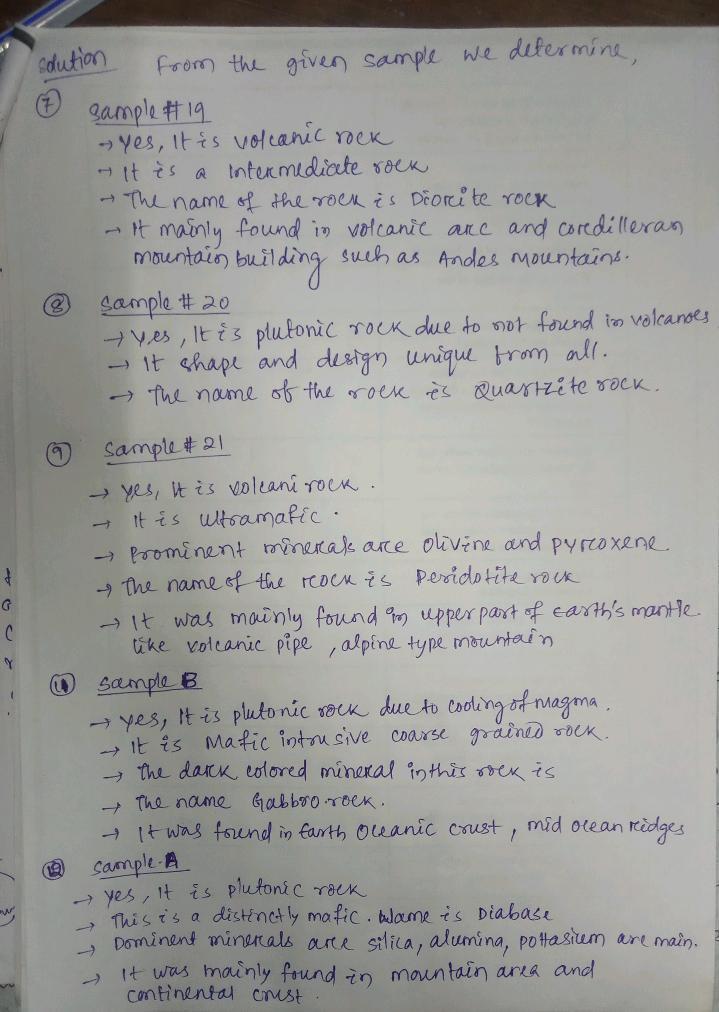 Solution From the given sample we determine,
7 Sample #19
→ Yes, It is volcanic rock
→ It is a Intermediate rock
→ The name of the rock is Diorite rock
→ It mainly found in volcanic arc and cordilleran
mountain building such as Andes Mountains.
8 Sample # 20
→ Yes, It is plutonic rock due to not found in volcanoes
→ It shape and design unique from all.
→ The name of the rock is Quartzite rock.
9 Sample # 21
→ Yes, It is volcani rock.
→ It is ultramafic.
→ Prominent minerals are Olivine and pyroxene.
→ The name of the rock is Peridotite rock
→ It was mainly found in upper part of Earth's mantle
like volcanic pipe, alpine type mountain
11 Sample B
→ Yes, It is plutonic rock due to cooling of magma.
→ It is Mafic intrusive coarse grained rock.
→ The dark colored mineral in this rock is
→ The name Gabbro rock.
→ It was found in Earth Oceanic crust, mid ocean ridges
12 Sample-A
→ Yes, It is plutonic rock
→ This is a distinctly mafic. Name is Diabase
→ Dominent minerals are silica, alumina, pottasium are main.
→ It was mainly found in mountain area and
continental crust.